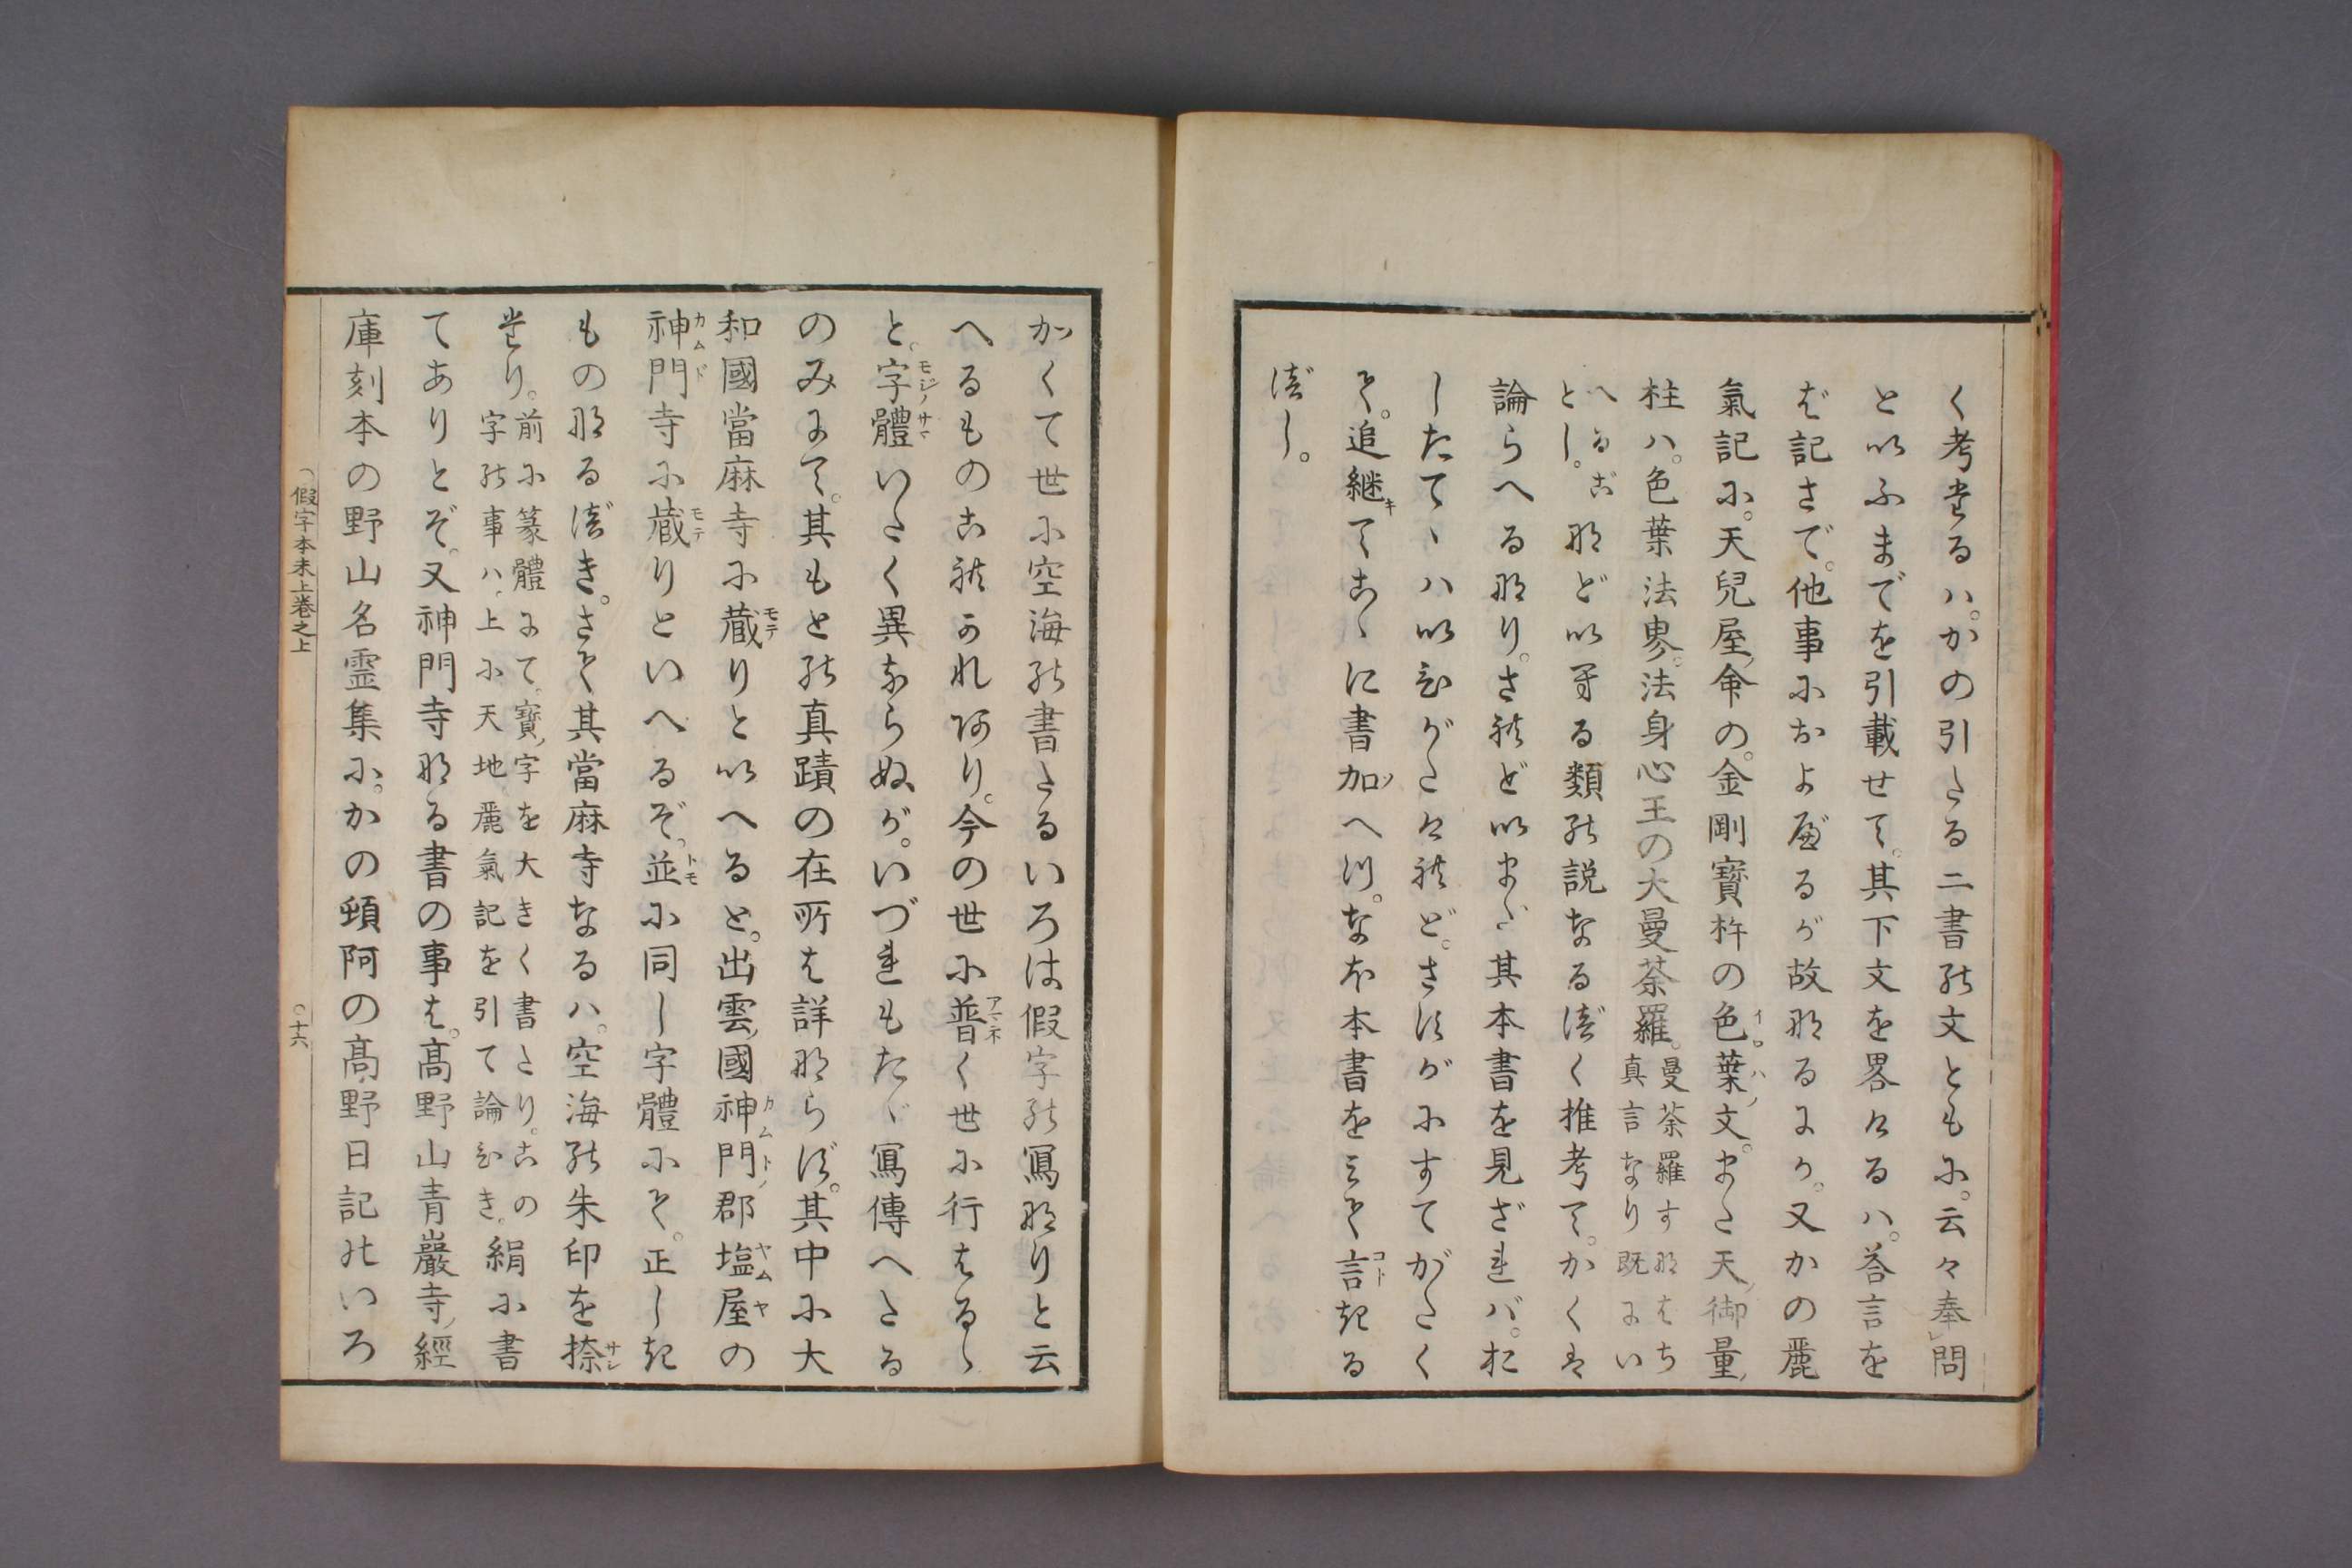 く考たるハ。かの引たる二書の文ともに。云々奉問
といふまでを引載せて。其下文を畧けるハ。荅言を
ば記さで。他事におよべるが故なるにか。又かの麗
氣記に。天兒屋命の。金剛寶杵の色葉文。また天御量
柱ハ。色葉法界。法身心王の大曼荼羅。曼荼羅すなはち
真言なり既にい
へるが
とし。
などいする類の説なるべく推考て。かくは
論らへるなり。されどいまだ其本書を見ざれバ。お
したてゝハいひがたけれど。さすがにすてがたく
て。追継てこゝに書加へつ。なほ本書をみて言ふる
べし。
かくて世に空海の書たるいろは假字の寫なりと云
へるものこれかれあり。今の世に普く世に行はるゝ
と。字體いたく異ならぬが。いづれもたゞ寫傳へたる
のみにて。其もとの真蹟の在所は詳ならず。其中に大
和國當麻寺に蔵りといへると。出雲國神門郡塩屋の
神門寺に蔵りといへるぞ。並に同し字體にて。正しき
ものなるべき。さて其當麻寺なるハ。空海の朱印を捺
たり。
前に篆體にて。寶字を大きく書たり。この
字の事ハ、上に天地麗氣記を引て論ひき。
絹に書
てありとぞ。又神門寺なる書の事は。髙野山青巖寺經
庫刻本の野山名霊集に。かの頓阿の髙野日記のいろ
假字本末上巻之上
○十六